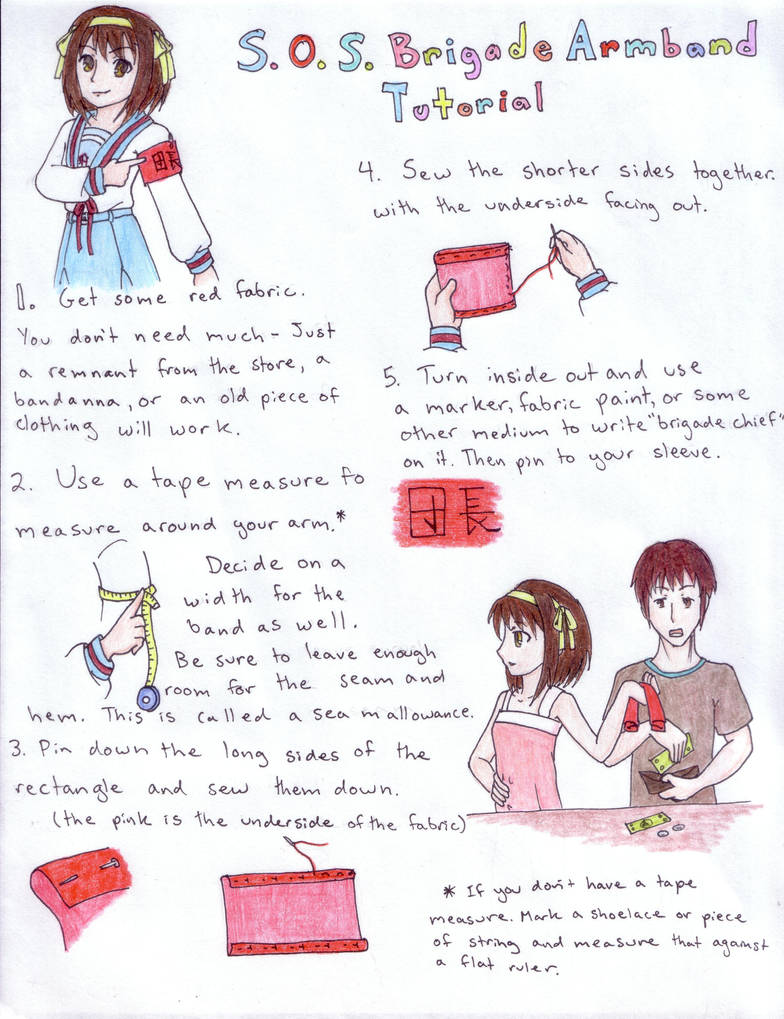 S.O.S. Brigade Armband
Tutorial
団長
1. Get some red fabric.
You don't need much - Just
a remnant from the store, a
bandanna, or an old piece of
clothing will work.
2. Use a tape measure to
measure around your arm.*
Decide on a
width for the
band as well.
Be sure to leave enough
room for the seam and
hem. This is called a seam allowance.
3. Pin down the long sides of the
rectangle and sew them down.
(the pink is the underside of the fabric)
4. Sew the shorter sides together.
with the underside facing out.
5. Turn inside out and use
a marker, fabric paint, or some
other medium to write "brigade chief"
on it. Then pin to your sleeve.
団長
* If you don't have a tape
measure. Mark a shoelace or piece
of string and measure that against
a flat ruler.